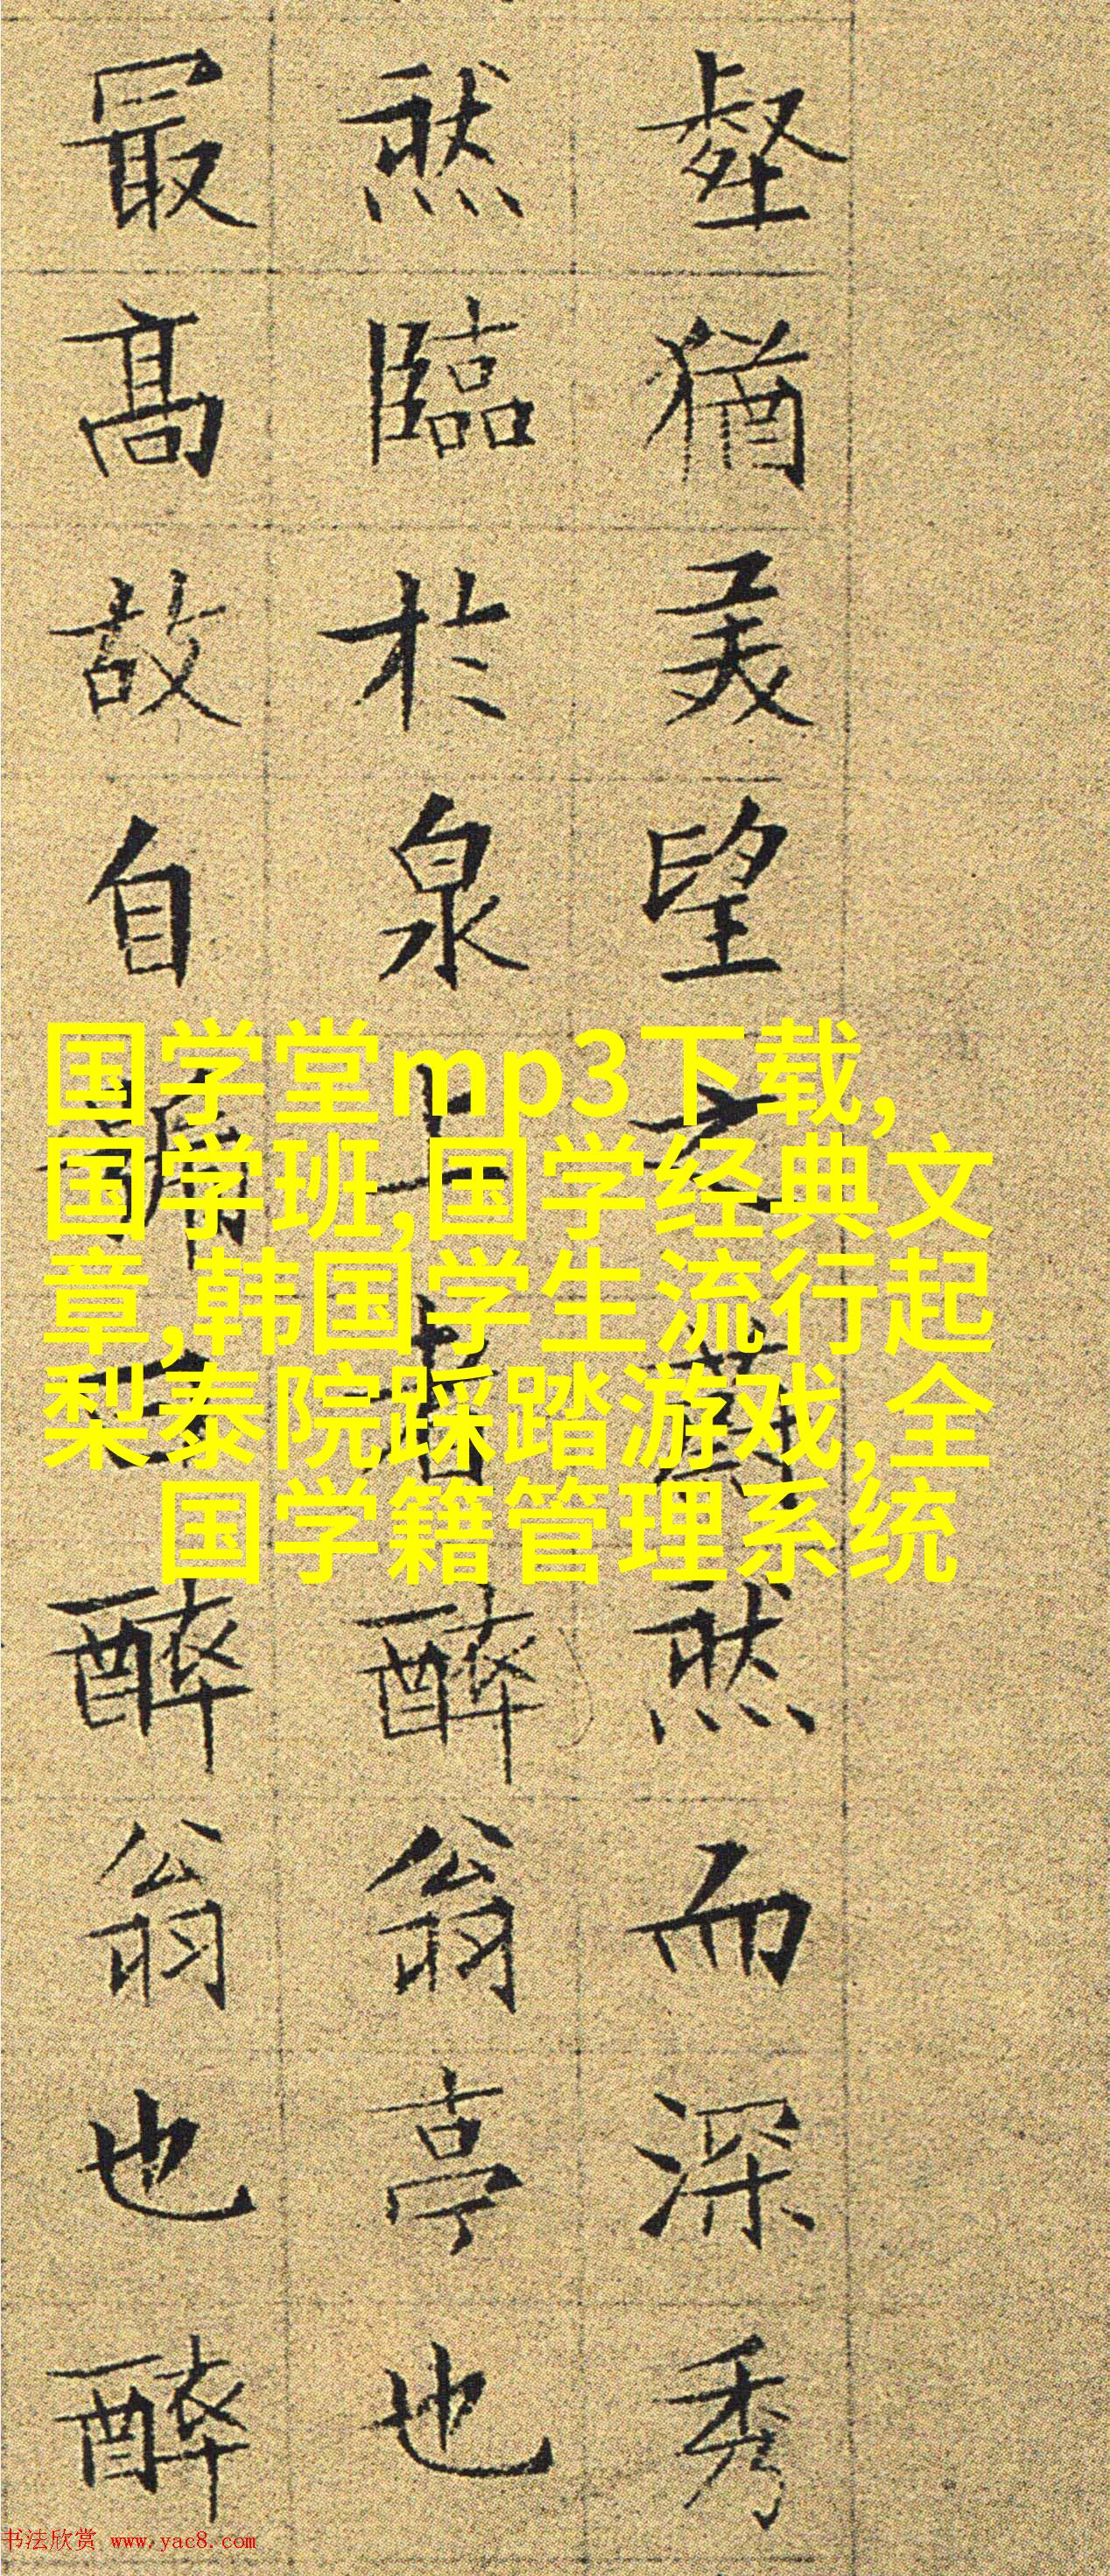 壑猶美望之蔚然而深秀
然臨於泉上者醉翁亭也
最高故自號曰醉翁也醉
国学堂mp3下载,
国学班,国学经典文
章,韩国学生流行起
梨泰院踩踏游戏,全
国学籍管理系统
书法欣赏 www.yac8.com